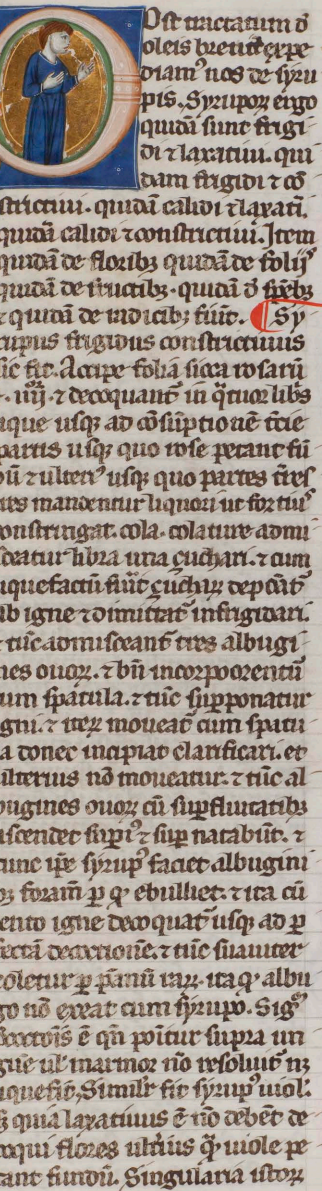 Ost tractatum d̄
oleis breuit̉ expe
diam᷒ nos de syru
pis. Syrupoꝝ ergo
quidā sunt frigi
di ⁊ laxatiui. qui
dam frigidi ⁊ cō
strictiui. quidā calidi ⁊ laxati.
quidā calidi ⁊ constrictiui. Item
quidā de floribꝫ quidā de folijs
quidā de fructibꝫ. quidā d̄
⁊ quidā de radicibꝫ fiūt. ¶ Sy
rupus frigidus constrictiuus
sic fit. Accipe folia sicca rosarū
. iiij. ⁊ decoquant᷒ in q̄tuor libs
aque usqꝫ ad cōsūptionē t̉cie
partis usqꝫ quo rose petant fū
dū ⁊ ulteri᷒ usqꝫ quo partes t̉res
res mandentur liquori ut forti᷒
onstringat. cola. colature admi
sceatur libra una çuchari. ⁊ cum
iquefactū fūit çuchaꝝ depōāt᷒
ab igne ⁊ dimittat᷒ infrigidari.
⁊ tūc admisceant᷒ tres albugi
nes ouoꝝ. ⁊ bn̄ incorpoorentū
um spatula. ⁊ tūc supponatur
igni. ⁊ iteꝝ moueat᷒ cum spatu
a donec incipiat clarificari. et
ulterius nō moueatur. ⁊ tūc al
bugines ouoꝝ cū suꝑfluitatibꝫ
ascendet supi᷒ ⁊ suꝑ natabūt. ⁊
tunc ip̄e syrup᷒ faciet albugini
bꝫ foram̄ ꝑ q̄ ebulliet. ⁊ ita cū
lento igne decoquat᷒ usqꝫ ad ꝑ
fectā decoctionē. ⁊ tūc suauiter
coletur ꝑ pānū raꝝ. ita q̄ albu
go nō exeat cum syrupo. Sig᷒
decoctōis ē qn̄ poītur supra un
gūe ul᷒ marmor nō resoluit᷒ nꝫ
iquefit. Simil̉r fit syrup᷒ uiol.
ꝫ quia laxatiuus ē nō debēt de
coqui flores ult̉ius q̄ uiole pe
tant fundū. Singularia istoꝝ